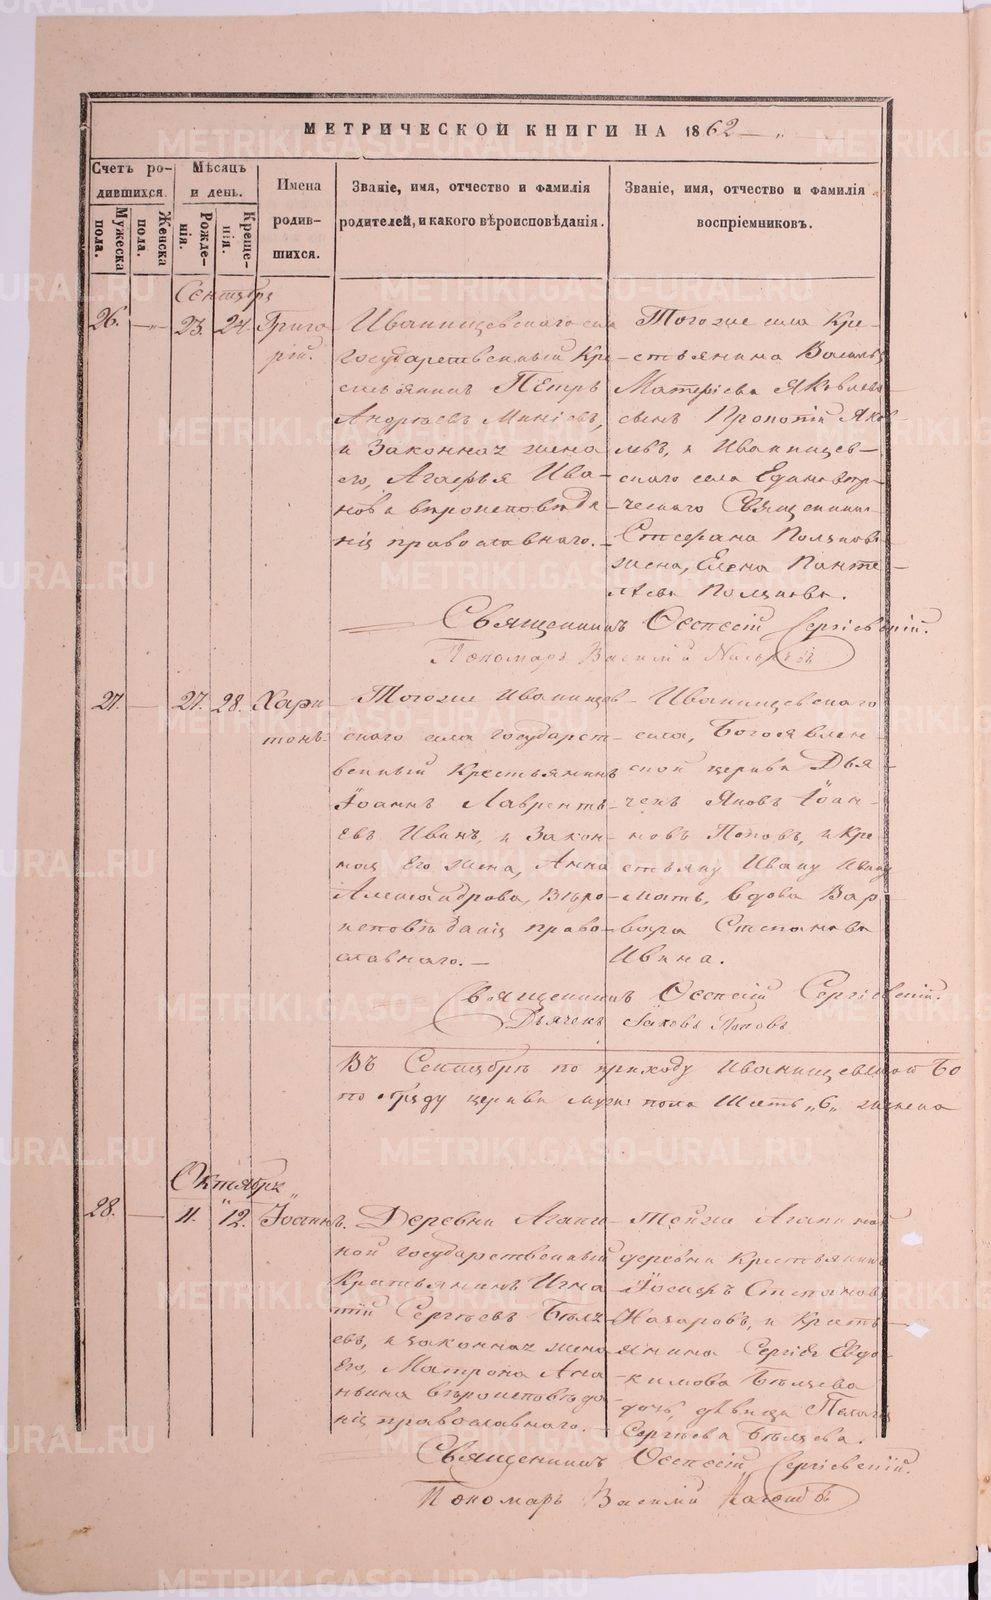 МЕТРИЧЕСКОЙ КНИГИ НА 1862
Счетъ ро-
дившихся.
Мѣсяцъ
и день.
Имена
родив-
шихся.
Званіе, имя, отчество и фамилія
родителей, и какого вѣроисповѣданія.
Званіе, имя, отчество и фамилія
воспріемниковъ.
Мужеска
пола.
Женска
пола.
Рожде-
нія.
Креще-
нія.
Сентябрь
26. 23. 24. Григо
рій.
Иванищевскаго села
государственный Кре
стьянинъ Пётръ
Андреевъ Минѣевъ,
и Законная жена
его, Агафья Ива
нова вѣроисповѣда
нія православнаго.
Тогоже села Кре-
стьянина
Матвѣева Яковлева
сынъ Прокопій Яков
левъ, и Иванищев-
скаго села Единовѣр-
ческаго Священника
Стефана
жена, Елена Панте
лѣева
Священникъ Сергіевскій.
Пономарь Василій
27. 27. 28. Хари
тонъ.
Тогоже Иванищев
скаго села государст-
венный Крестьянинъ
Іоаннъ Лавренть
евъ Ивинъ, и Закон-
ная Его жена, Анна
Александрова, Вѣро
исповѣданія право-
славнаго.
Иванищевскаго
села, Богоявлен-
ской церкви Дья
чекъ Яковъ Іоан-
новъ Поповъ, и Кре
стьяну Ивану Ивину
мать, вдова Вар
вара Степанова
Ивина.
Священникъ Сергіевскій.
Дьячекъ Яковъ Поповъ
Въ Сентябрѣ по приходу Иванищевской Бо
по обряду церкви муж: пола Шесть „6„ женска
Октябрь
28. 11. 12. Іоаннъ.
Деревни Агапи
ной государственный
Крестьянинъ Игна
тій Сергѣевъ Бѣля
евъ, и законная жена
Его, Матрона Ана
ньина вѣроисповѣда
нія православнаго.
Тойже Агапиной
деревни Крестьянинъ
Іосифъ Степановъ
Назаровъ, и Кресть
янина Сергія Евдо
кимова Бѣляева
дочь, дѣвица Пелагія
Сергѣева Бѣляева.
Священникъ Сергіевскій.
Пономарь Василій
METRIKI.GASO-URAL.RU